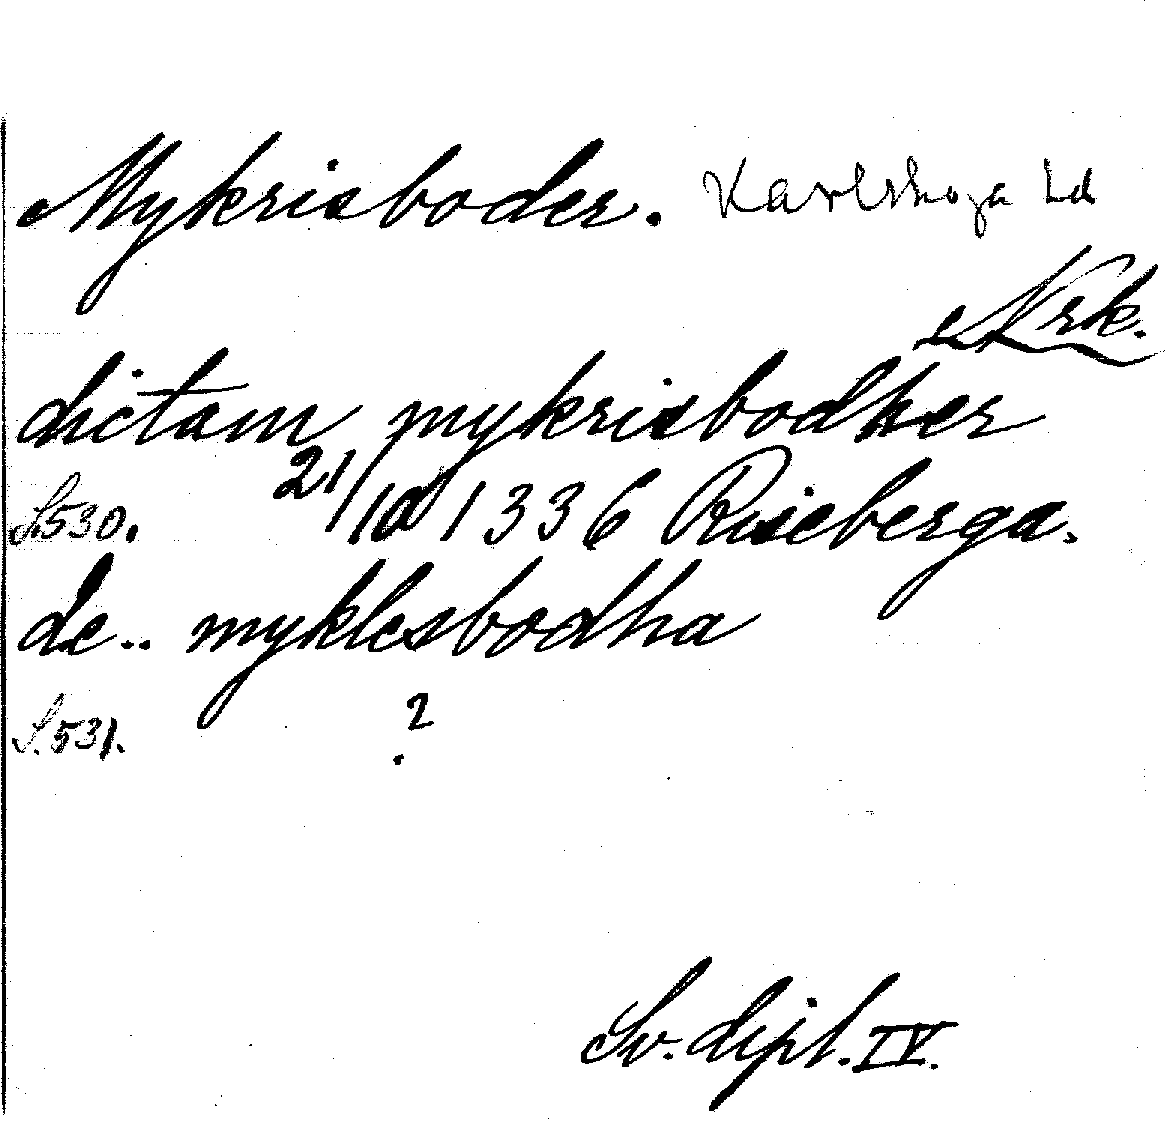 Mykrisboder. Karlskoga Ld
Nrk.
dictam mykrisbodher
S.530. 21/10 1336 Riseberga.
de.. myklesbodha
S.531. ?
Sv. dipl. IV.